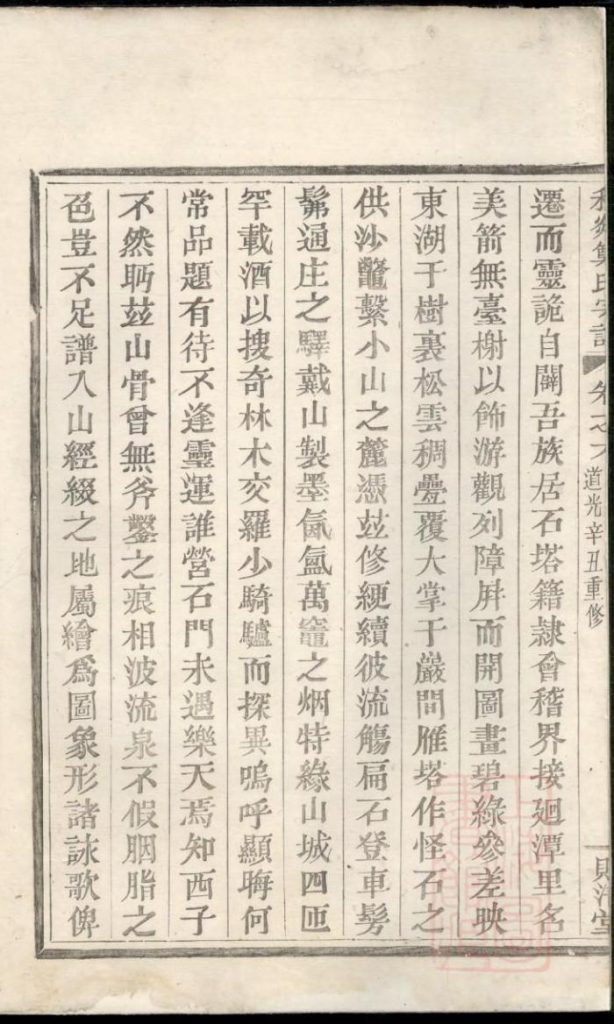 氏宗譜
道光辛丑重修
遷而靈詭自闢吾族居石塔籍隸會稽界接廻潭里名
美箭無臺榭以飾游觀列障屏而開圖畫碧綠參差映
東湖于樹裏松雲稠疊覆大掌于巖間雁塔作怪石之
供沙鼈繫小山之麓憑玆修綆續彼流觴扁石登車髣
髴通庄之驛戴山製墨氤氳萬竈之烟特緣山城四匝
罕載酒以搜奇林木交羅少騎驢而探異嗚呼顯晦何
常品題有待不逢靈運誰營石門未遇樂天焉知西子
不然眄玆山骨曾無斧鑿之痕相彼流泉不假胭脂之
色豈不足譜入山經綴之地屬繪爲圖象形諸詠歌俾